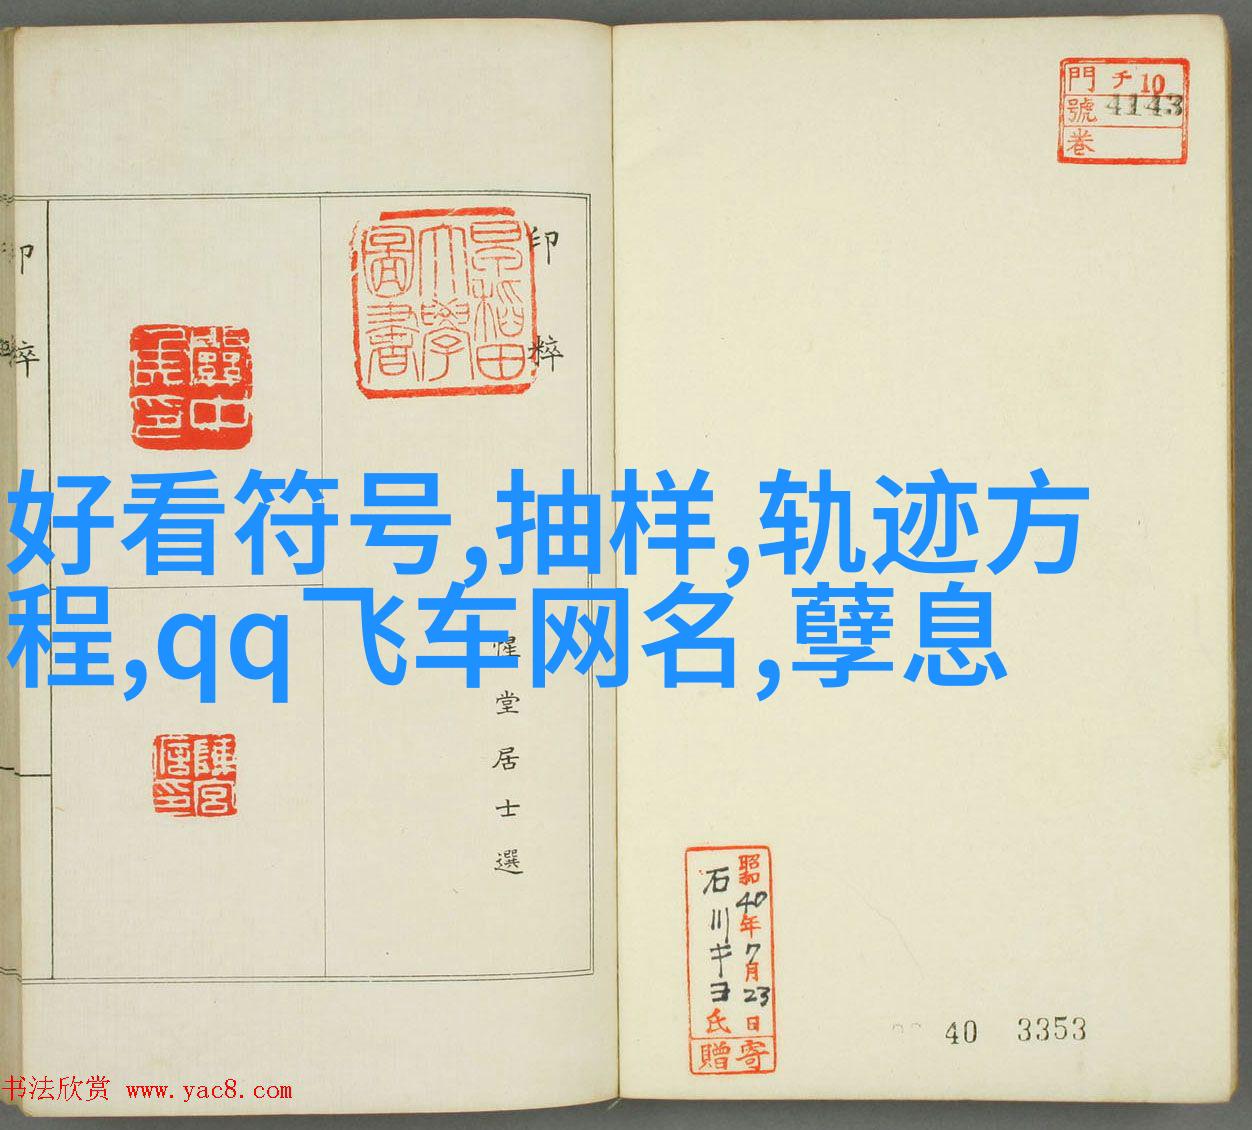 門 チ 10
號 4143
卷
印粹
早稻田
大學
圖書
惺堂居士選
印粹
好看符号,抽样,轨迹方
程,qq飞车网名,孽息
昭和40年7月23日
石川キヨ氏
寄贈
40 3353
书法欣赏 www.yac8.com